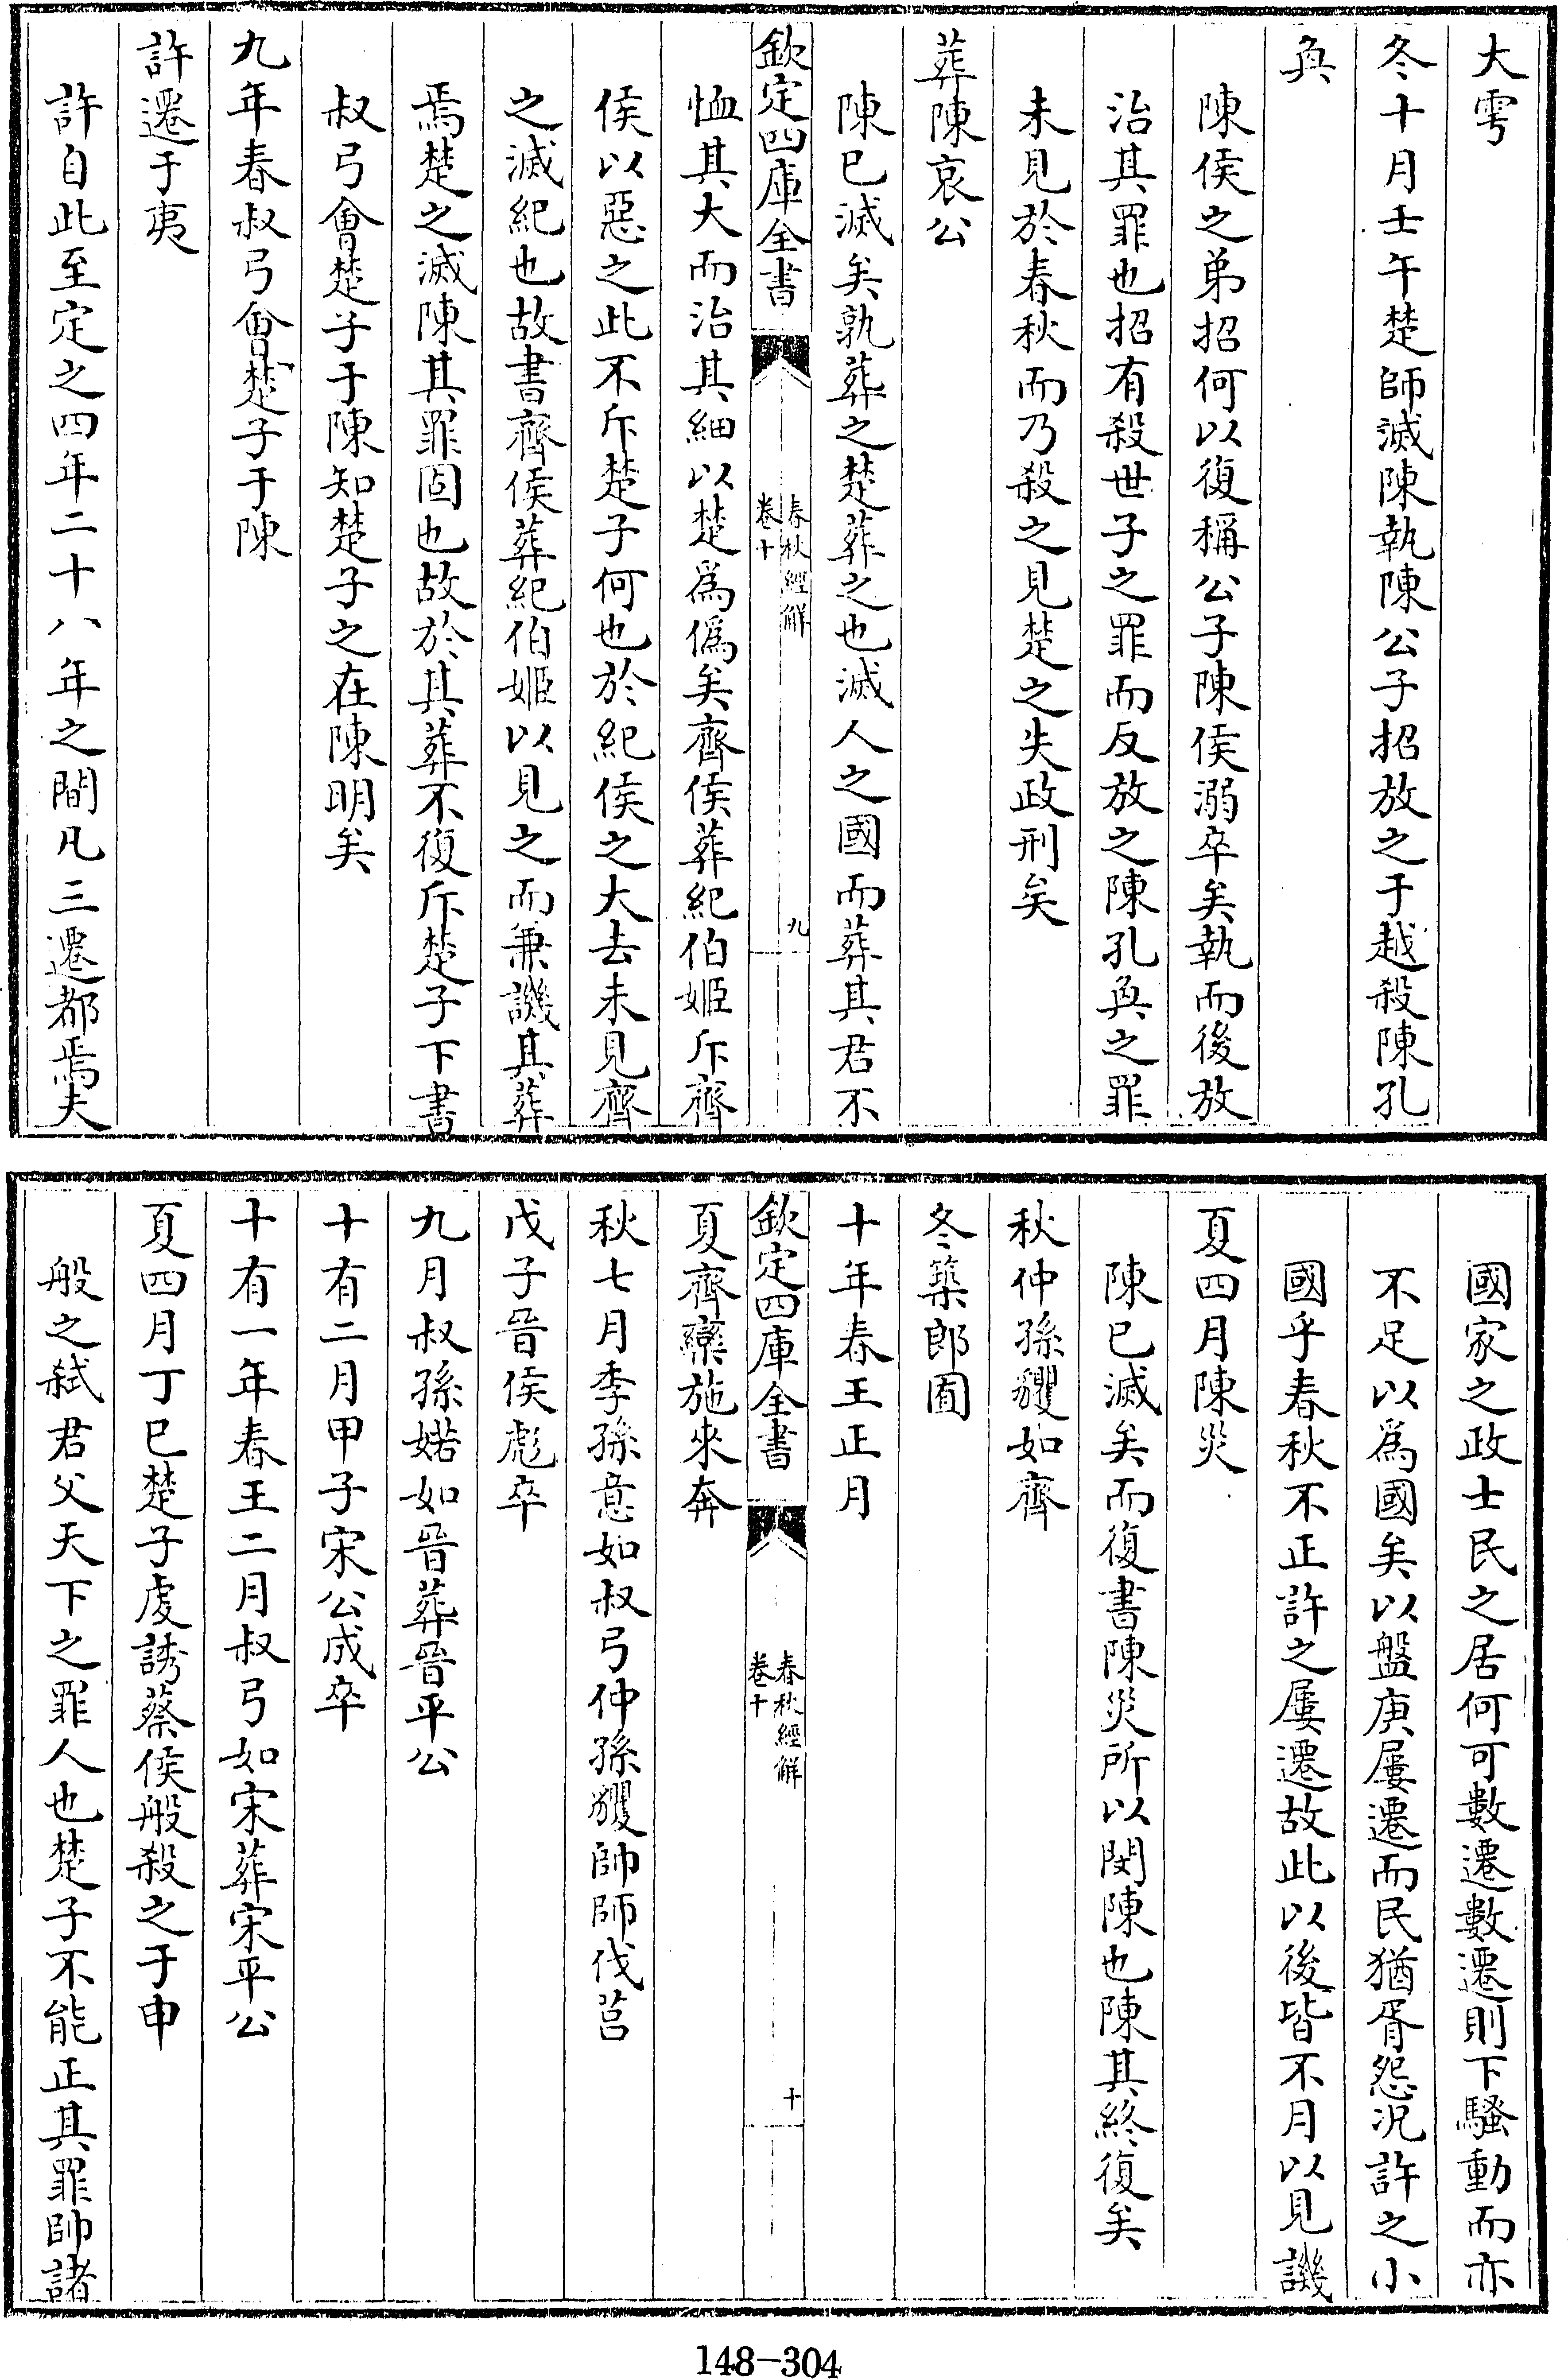 大雩
冬十月壬午楚師滅陳執陳公子招放之于越殺陳孔
奐
陳侯之弟招何以復稱公子陳侯溺卒矣執而後放
治其罪也招有殺世子之罪而反放之陳孔奐之罪
未見於春秋而乃殺之見楚之失政刑矣
葬陳哀公
陳已滅矣孰葬之楚葬之也滅人之國而葬其君不
欽定四庫全書
春秋經解
卷十
九
恤其大而治其細以楚爲僞矣齊侯葬紀伯姬斥齊
侯以惡之此不斥楚子何也於紀侯之大去未見齊
之滅紀也故書齊侯葬紀伯姬以見之而兼譏其葬
焉楚之滅陳其罪固也故於其葬不復斥楚子下書
叔弓會楚子于陳知楚子之在陳明矣
九年春叔弓會楚子于陳
許遷于夷
許自此至定之四年二十八年之間凡三遷都焉夫
國家之政士民之居何可數遷數遷則下騷動而亦
不足以爲國矣以盤庚屢遷而民猶胥怨況許之小
國乎春秋不正許之屢遷故此以後皆不月以見譏
夏四月陳災
陳已滅矣而復書陳災所以閔陳也陳其終復矣
秋仲孫貜如齊
冬築郎囿
十年春王正月
欽定四庫全書
春秋經解
卷十
十
夏齊欒施來奔
秋七月季孫意如叔弓仲孫貜帥師伐莒
戊子晉侯彪卒
九月叔孫婼如晉葬晉平公
十有二月甲子宋公成卒
十有一年春王二月叔弓如宋葬宋平公
夏四月丁巳楚子虔誘蔡侯般殺之于申
般之弑君父天下之罪人也楚子不能正其罪帥諸
148-304